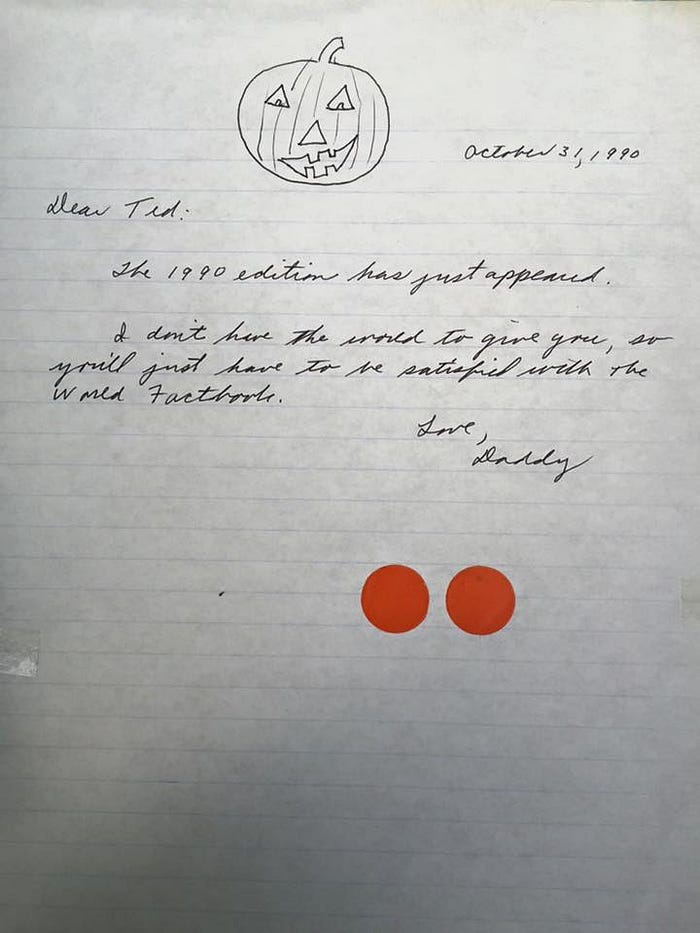 October 31, 1990
Dear Ted:
The 1990 edition has just appeared.
I don't have the world to give you, so
you'll just have to be satisfied with the
World Factbook.
Love,
Daddy